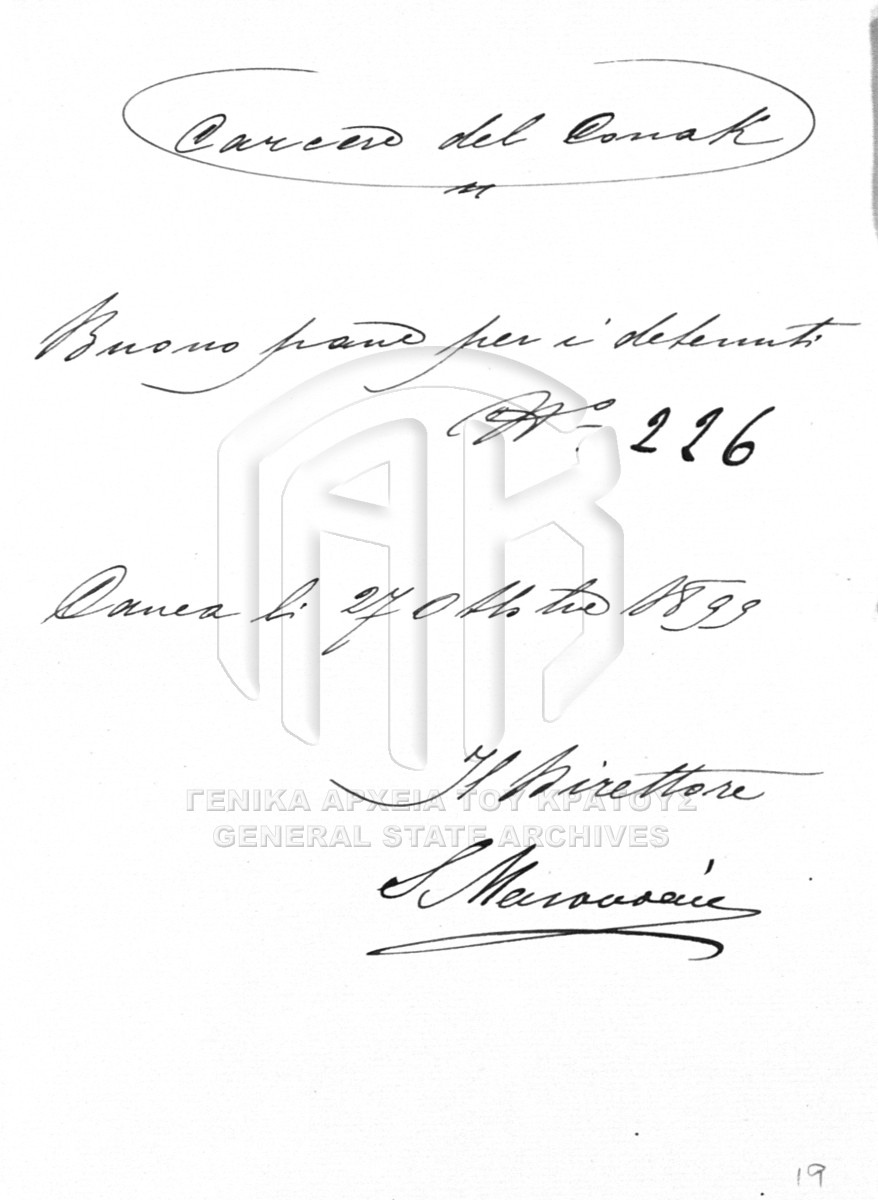 Carcere del Conak
Buono pane per i detenuti
N° 226
Canea li 27 Ottobre 1899
Il Direttore
ΓΕΝΙΚΑ ΑΡΧΕΙΑ ΤΟΥ ΚΡΑΤΟΥΣ
GENERAL STATE ARCHIVES
S
19